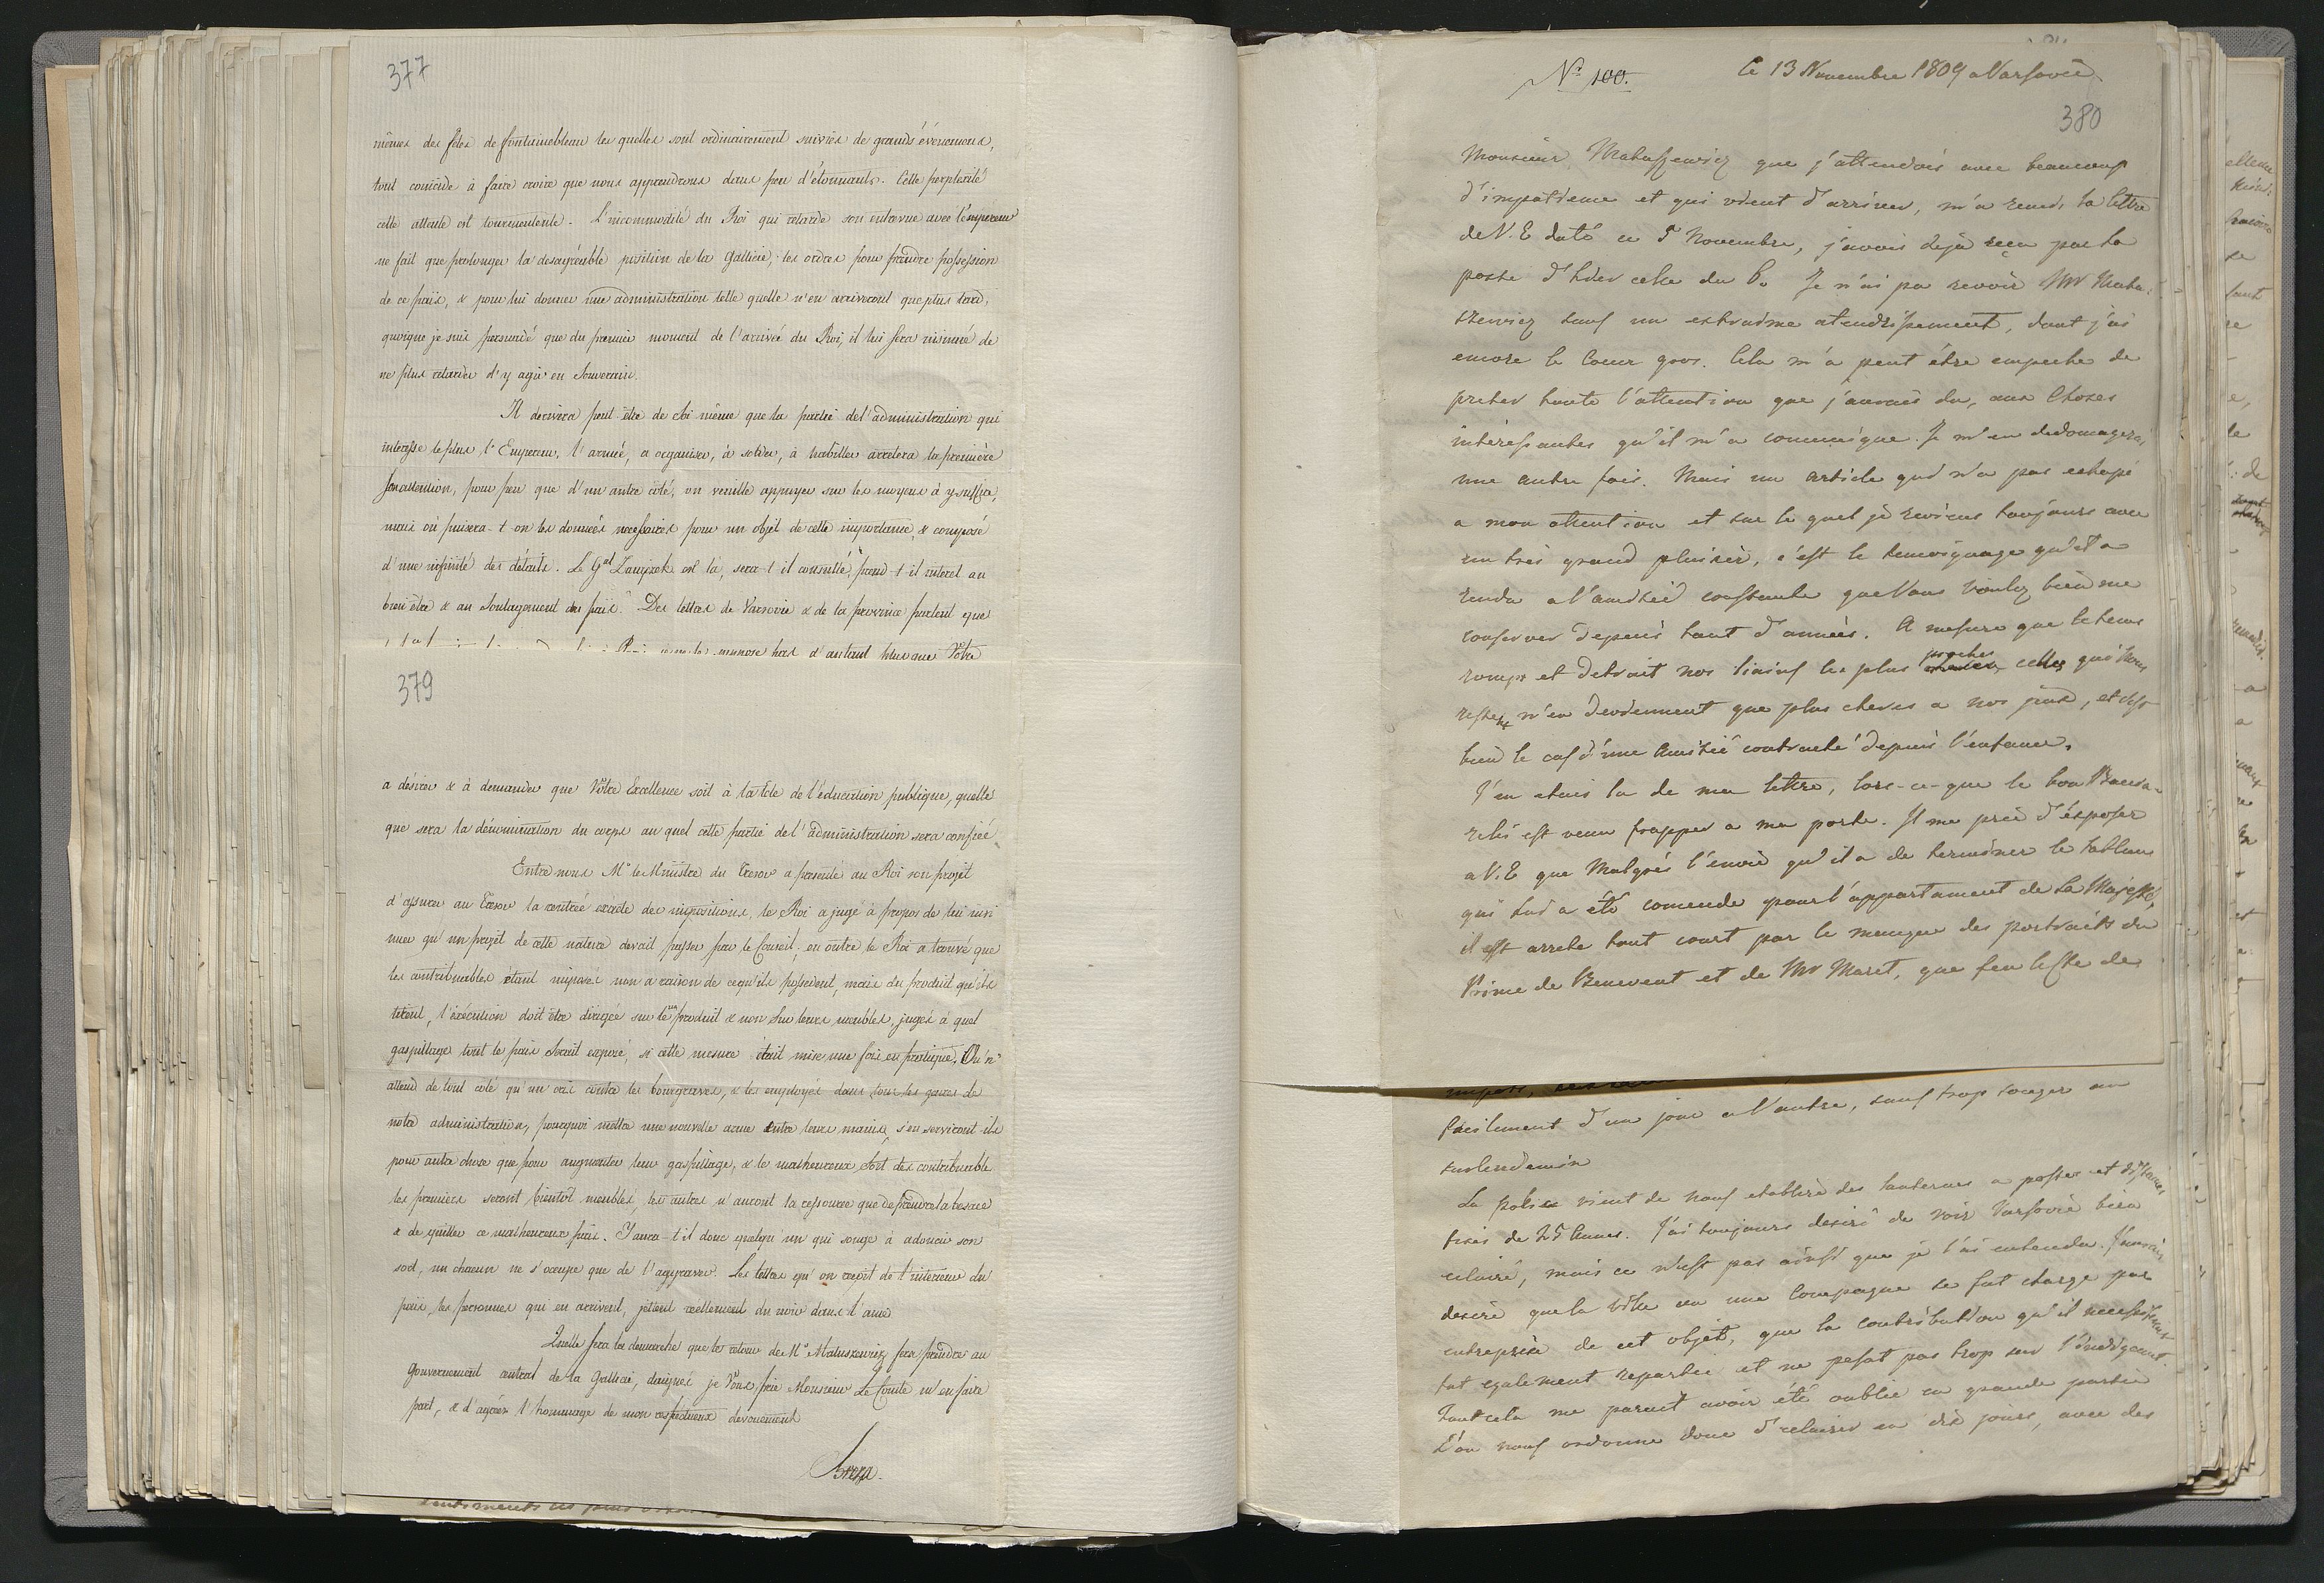 377
mêmes des fêtes de fontainebleau les quelles sont ordinairement suivies de grands évènemens,
tout coincide à faire croire que nous apprendrons dans peu d'étonnants. Cette perplexité
cette attente est tourmentente. L'incommodité du Roi qui retarde son entrevue avec l'empereur
ne fait que prolonger la desagréable position de la Gallicie; les ordres pour prendre possession
de ce païs, & pour lui donner une administration telle quelle n'en arriveront que plus tard;
quoique je suis persuadé que du premier moment de l'arrivée du Roi, il lui sera insinué de
ne plus retarder d'y agir en Souverain.
Il arrivera peut être de chi même que la partie de l'administration qui
interesse le plus l'Empereur, l'armée, a organiser, à solder, à habiller arretera la première
son attention, pour peu que d'un autre côté, on veuille appuyer sur les moyens à y suffire,
mais où puisera-t-on les donnés necessaires pour un objet de cette importance, & composé
d'une infinité des détails. Le Gal Zaujzek est là, sera-t-il consulté, prend-t-il interet au
bien être & au Soulagement du païs? Des lettres de Varsovie & de la province portent que
d'autant plus que Votre
379
a désirer & à demander que Vôtre Excellence soit à la tête de l'éducation publique, quelle
que sera la dénomination du corps au quel cette partie de l'administration sera confiée.
Entre nous Mr le Ministre du Tresor a presenté au Roi son projet
d'assurer au Tresor la rentrée exacte des impositions, le Roi a jugé à propos de lui insi
nuer qu'un projet de cette nature devait passer par le Conseil; en outre le Roi a trouvé que
les contribuables étant imposés non a raison de ce qu'ils possedent, mais du produit qu'ils
tirent, l'exécution doit être dirigée sur le produit & non sur leurs meubles, jugés à quel
gaspillage tout le païs serait exposé, si cette mesure était mise une fois en pratique. On n'
attend de tout côté qu'un cris contre les bourgraves, & les employés dans tous les genres de
notre administration, pourquoi mettre une nouvelle arme entre leurs mains, s'en serviront-ils
pour autre chose que pour augmenter leur gaspillage, & le malheureux sort des contribuable
les premiers seront bientôt meublés, les autres n'auront la ressource que de prendre la besace
& de quitter ce malheureux païs. Y aura-t-il donc quelqu'un qui songe à adoucir son
sort, un chacun ne s'occupe que de l'aggraver. Les lettres qu'on reçoit de l'interieur du
païs, les personnes qui en arrivent, jettent reellement du noir dans l'ame
Quelle sera la demarche que le retour de Mr Matuszewicz fera prendre au
Gouvernement central de la Gallicie, daignés je Vous prie Monsieur Le Comte m'en faire
part, & d'agréer l'hommage de mon respectueux devouement
Breza
sentiments les plus
No 100.
Ce 13 Novembre 1809 a Varsovie
380
Monsieur Matuszewicz que j'attendois avec beaucoup
d'impatience et qui vient d'arriver, m'a remis la lettre
de V. E daté ce 5 Novembre, j'avois deja reçu par la
poste d'hier celle du 6. Je n'ai pu revoir Mr Matu-
szewicz sans un extreme atendrissement, dont j'ai
encore le Coeur gros. Cela m'a peut être empeche de
preter toute l'attention que j'aurais du, aux Choses
intéressantes qu'il m'a comunique. Je m'en dedomagerai
une autre fois. Mais un article qui n'a pas echapé
a mon attention et sur le quel je reviens toujours avec
un très grand plaisir, c'est le temoignage qu'il a
rendu a l'amitié constante que Vous voulez bien me
conserver depuis tant d'années. A mesure que le tems
rompt et detruit nos liaisons les plus proches celles qui nous
restent n'en deviennent que plus cheres a nos yeux, et c'est
bien le cas d'une Amitié contracté depuis l'enfance.
J'en etais la de ma lettre, lors-ce-que le bon Baccia-
relli est venu frapper a ma porte. Il me prie d'exposer
a V. E que Malgrés l'envie qu'il a de terminer le tableau
qui lui a été comendé pour l'appartament de Sa Majesté,
il est arreté tout court par le manque des portraits du
Prince de Benevent et de Mr Maret, que feu Leske de
facilement d'un jour a l'autre, sans trop songer au
surlendemin
La police vient de nous etablire des lanternes a postes et distances
fixes de 25 Aunes. J'ai toujours desiré de voir Varsovie bien
eclairé, mais ce n'est pas ainsi que je l'ai entendu. J'aurais
desiré que la ville ou une Compagne se fut charge par
entreprise de cet objet, que la contribution qu'il necessitent
fut egalement repartie et ne pesat pas trop sur l'indigent.
Tout cela me parait avoir été oublié en grande partie
L'on nous ordonne donc d'eclairer en dix jours, avec des